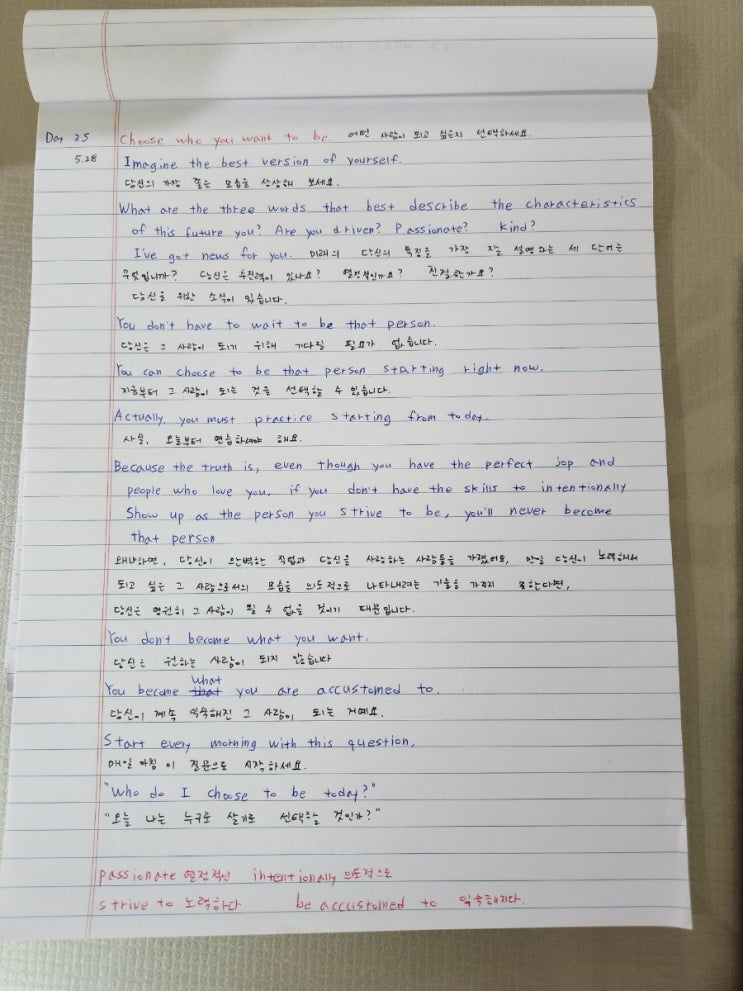 Day 35 Choose who you want to be 어떤 사람이 되고 싶은지 선택하세요.
5.28 Imagine the best version of yourself.
당신의 가장 좋은 모습을 상상해 보세요.
What are the three words that best describe the characteristics
of this future you? Are you driven? Passionate? Kind?
I've got news for you. 미래의 당신의 특징을 가장 잘 설명하는 세 단어는
무엇입니까? 당신은 추진력이 있나요? 열정적인가요? 친절한가요?
당신을 위한 소식이 있습니다.
You don't have to wait to be that person.
당신은 그 사람이 되기 위해 기다릴 필요가 없습니다.
You can choose to be that person starting right now.
지금부터 그 사람이 되는 것을 선택할 수 있습니다.
Actually, you must practice starting from today.
사실, 오늘부터 연습하셔야 해요.
Because the truth is, even though you have the perfect jop and
people who love you, if you don't have the skills to intentionally
Show up as the person you strive to be, you'll never become
that person
왜냐하면, 당신이 완벽한 직업과 당신을 사랑하는 사람들을 가졌어도, 만일 당신이 노력해서
되고 싶은 그 사람으로서의 모습을 의도적으로 나타내려는 기술을 가지지 못한다면,
당신은 영원히 그 사람이 될 수 없을 것이기 때문입니다.
You don't become what you want.
당신은 원하는 사람이 되지 않습니다
what
You become that you are accustomed to.
당신이 계속 익숙해진 그 사람이 되는 거예요.
Start every morning with this question,
매일 아침 이 질문으로 시작하세요.
"Who do I choose to be today?"
"오늘 나는 누구로 살기로 선택할 것인가?"
passionate 열정적인 intentionally 의도적으로
strive to 노력하다 be accustomed to 익숙해지다.